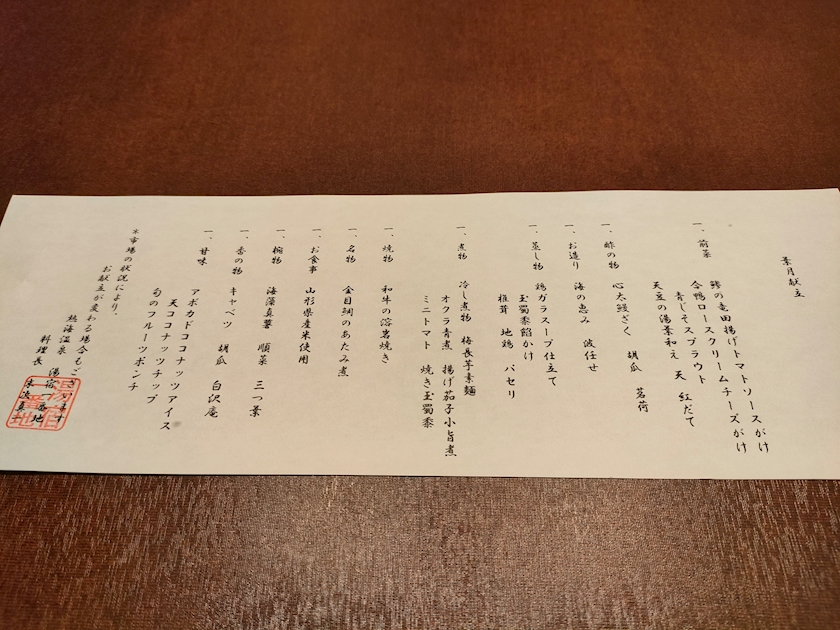 葉月献立
一、前菜
鯵の竜田揚げトマトソースがけ
合鴨ロースクリームチーズがけ
青じそスプラウト
天豆の湯葉和え 天 紅だて
一、酢の物 心太鰻ざく 胡瓜 茗荷
一、お造り 海の恵み 波任せ
一、蒸し物 鶏ガラスープ仕立て
玉蜀黍餡かけ
椎茸 地鶏 パセリ
一、煮物 冷し煮物 梅長芋素麺
オクラ青煮 揚げ茄子小旨煮
ミニトマト 焼き玉蜀黍
一、焼物 和牛の溶岩焼き
一、名物 金目鯛のあたみ煮
一、お食事 山形県産米使用
一、椀物 海藻真薯 順菜 三つ葉
一、香の物 キャベツ 胡瓜 白沢庵
一、甘味
アボカドココナッツアイス
天ココナッツチップ
旬のフルーツポンチ
※市場の状況により、
お献立が変わる場合もございます
熱海温泉 湯宿一番地
料理長